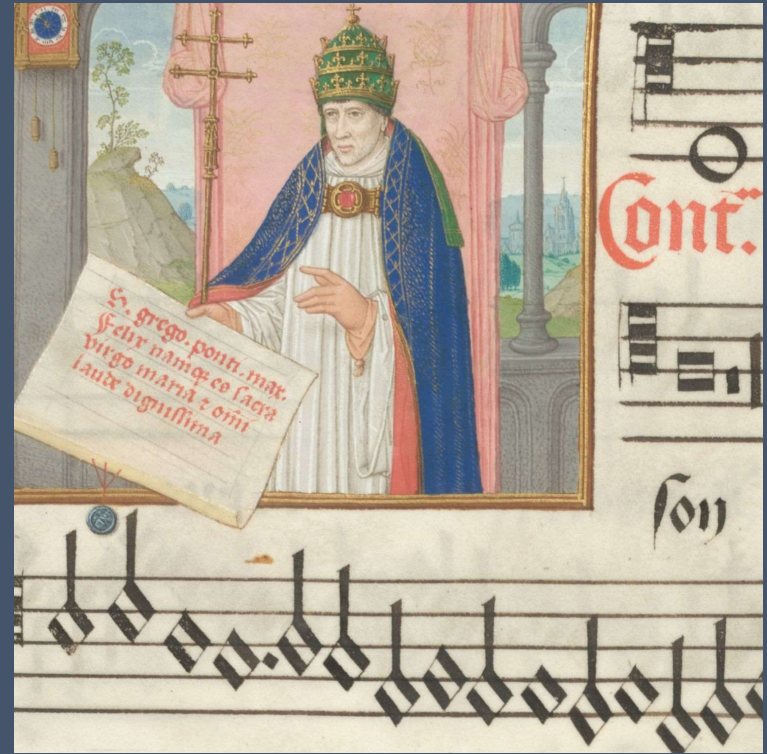 Cont.
S. grego. ponti. max.
Felix namq; es sacra
virgo maria z omi
laude dignissima
son